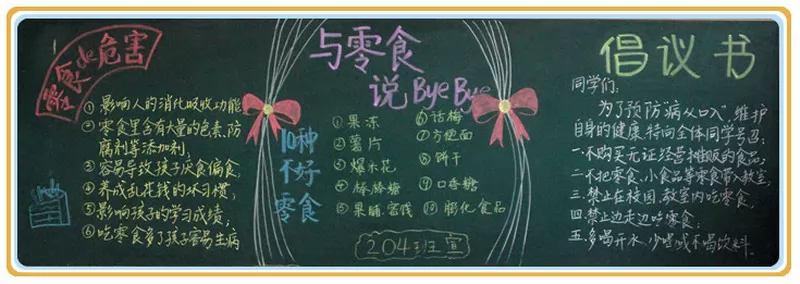 零食de危害
①影响人的消化吸收功能
②零食里含有大量的色素、防
腐剂等添加剂；
③容易导致孩子厌食偏食；
④养成乱花钱的坏习惯；
⑤影响孩子的学习成绩；
⑥吃零食多了孩子容易生病
与零食
说ByeBye
10种
不好
零食
①果冻
②薯片
③爆米花
④棒棒糖
⑤果脯蜜饯
⑥话梅
⑦方便面
⑧饼干
⑨口香糖
⑩膨化食品
204班宣
倡议书
同学们：
为了预防"病从口入"，维护
自身的健康，特向全体同学号召：
一.不购买无证经营摊贩的食品；
二.不把零食、小食品等零食带入教室；
三.禁止在校园、教室内吃零食；
四.禁止边走边吃零食；
五.多喝开水，少喝或不喝饮料.